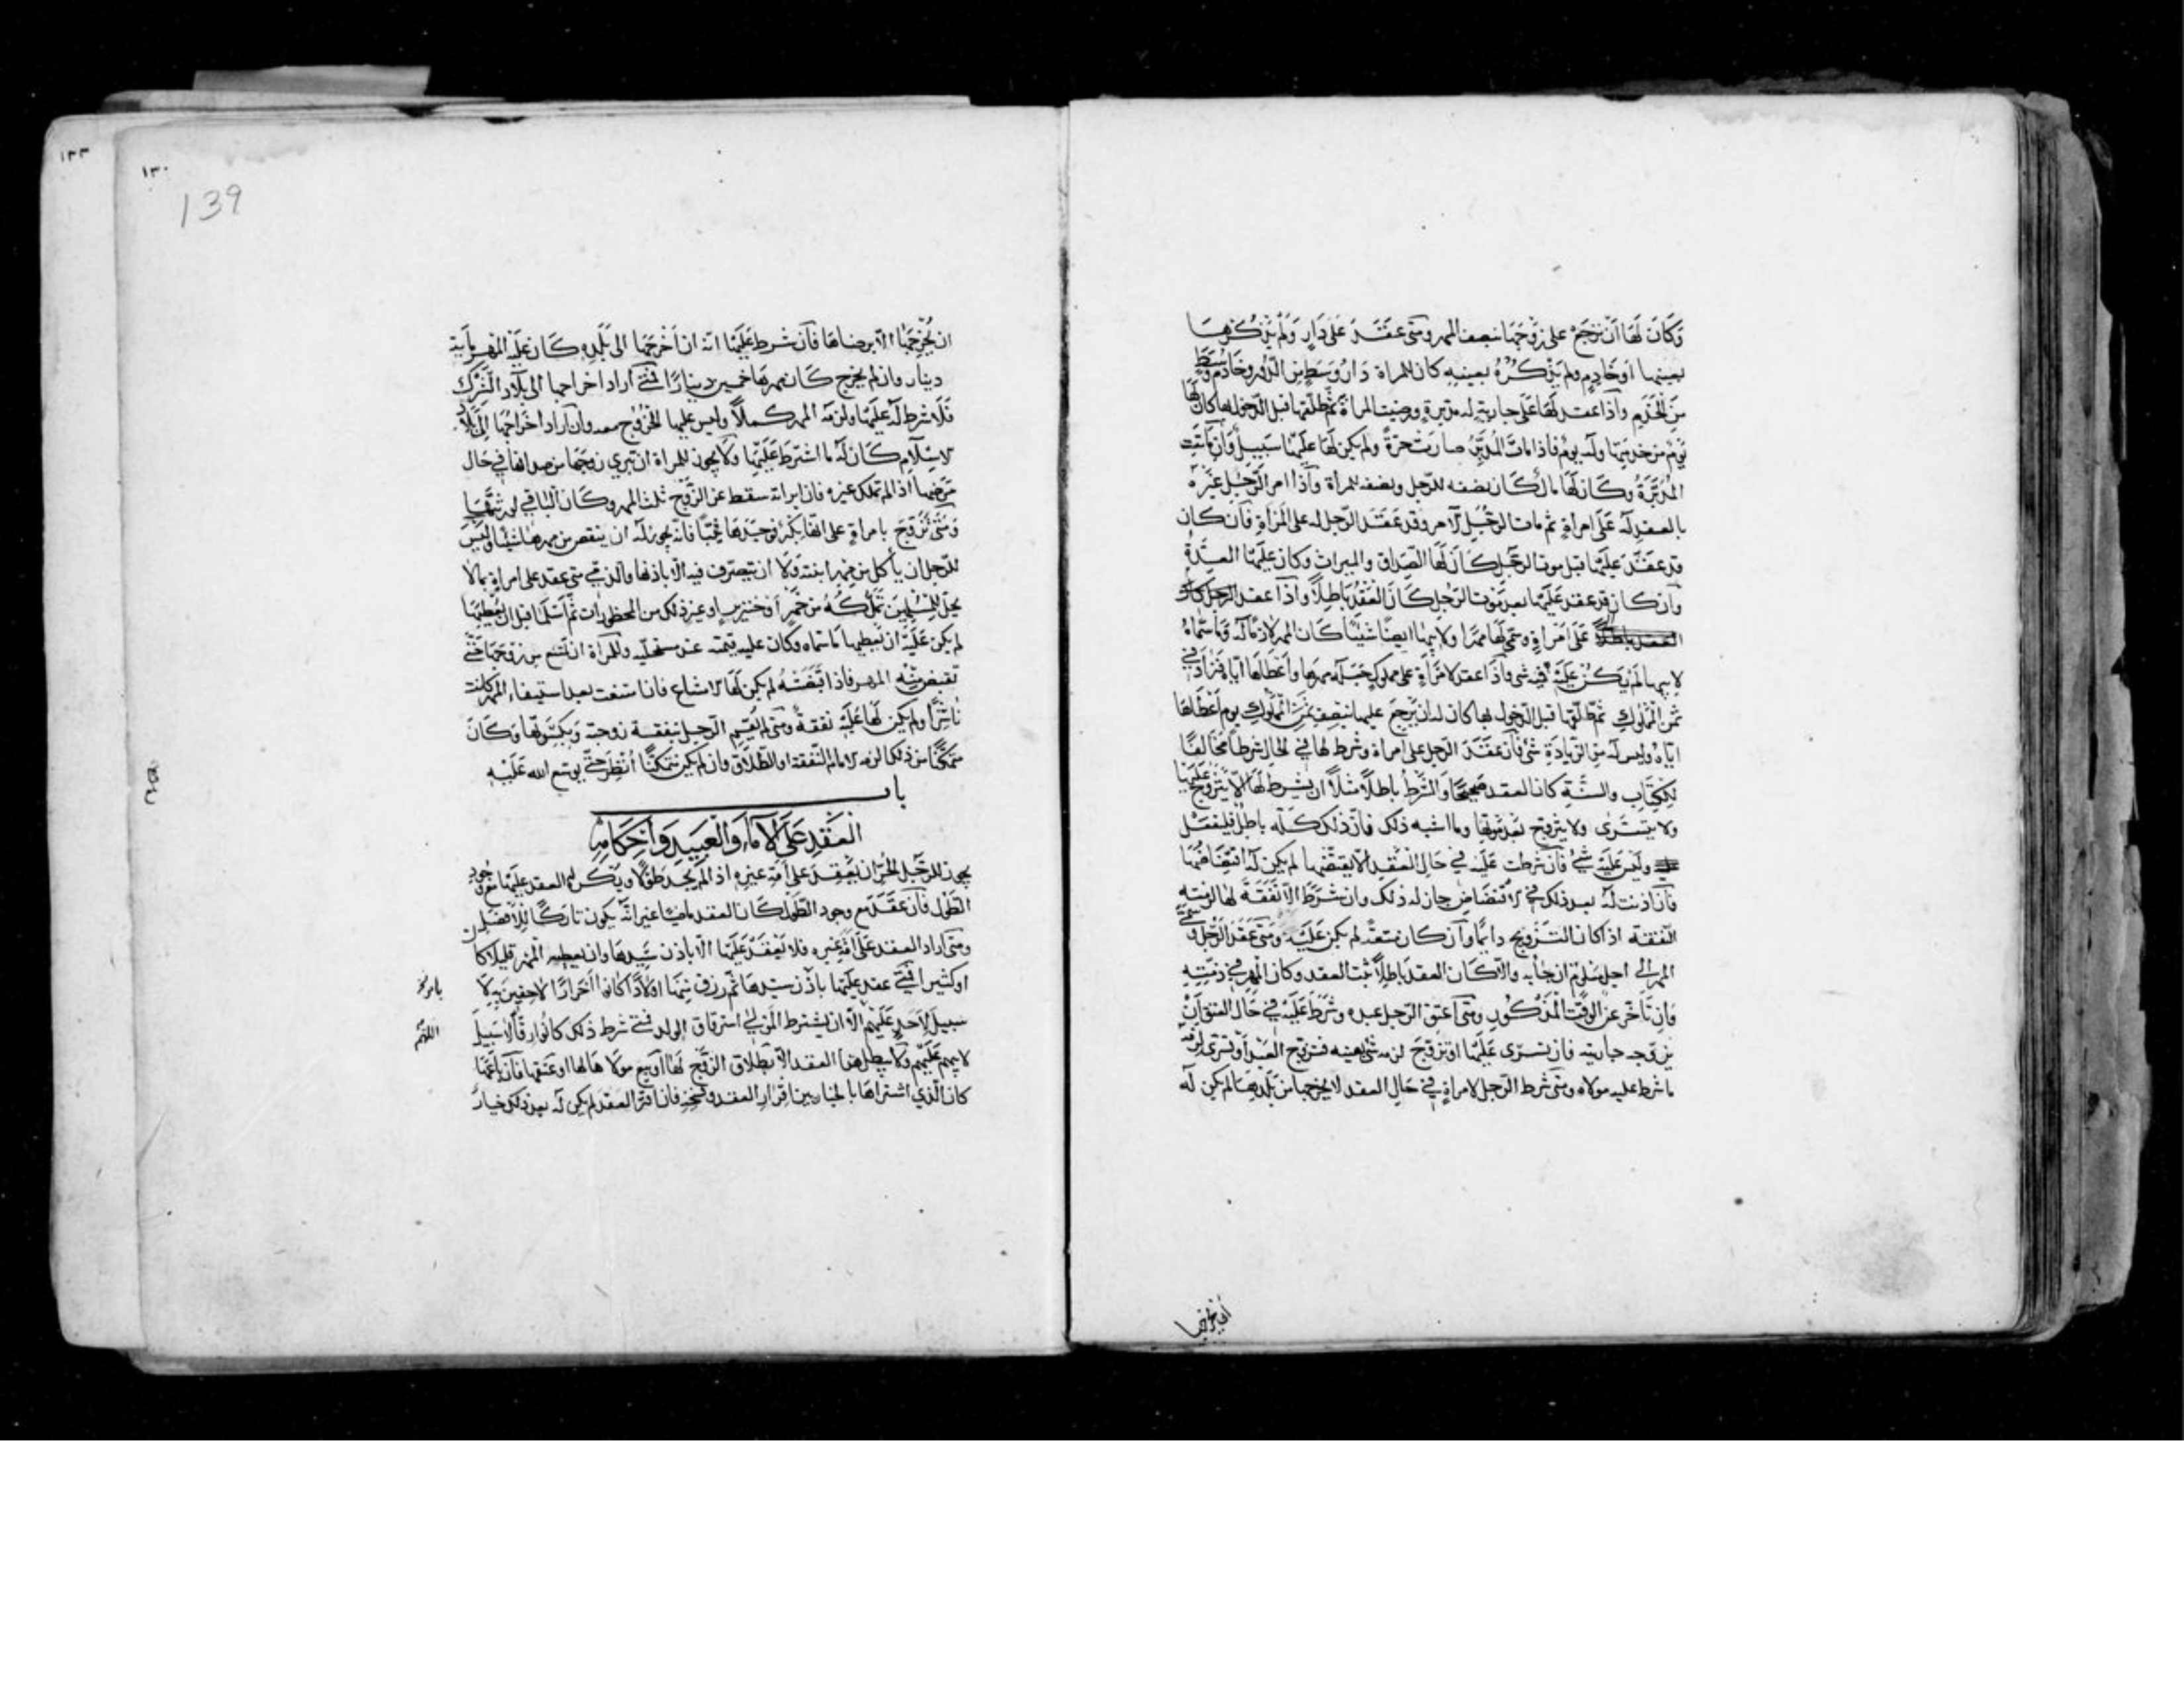 وَكَانَ لَهَا أَنْ تَرْجِعَ على زَوْجِهَا بنصف المهر ومتى عَقَدَ عَلَى دَارٍ وَلَمْ يَذْكُرْهَا
بعينها أوخَادِمٍ ولم يَذْكُرْهُ بعينِهِ كان للمراة دَارٌ وَسَطٍ مِنَ الدُّور وخَادمٌ وَسَطٌ
مِنَ الخَدَمِ وَاذَا عقد لَهَا عَلَى جارِيةٍ له مدبرةٍ ورضيت المراة ثم طلّقها قبل الدّخول بها كان لَهَا
يَومٌ من خدمَتِهَا وله يومٌ فاذا ماتَ المُدَبِّرُ صارَت حرّةً ولم يكن لَهَا عَلَيْهَا سَبِيلٌ وَان مَاتَت
المُدَبَّرَةُ وكَانَ لَهَا مالٌ كَانَ نصفه للرّجل ونصفه للمراة وَاذا امر الرَّجُلُ غَيْرَهُ
بالعقد لَهُ عَلَى امراةٍ ثم مات الرَّجُل الآمر وقد عَقَدَ الرّجل له على المَرْأَةِ فَان كان
قد عَقَدَ عَلَيْهَا قبل موت الرجل كَانَ لَهَا الصِّدَاق والميراث وكان عَلَيْهَا العِدَّةُ
وَان كان قد عقد عَلَيْهَا بعد مَوْت الرّجلِ كَانَ العَقْدُ بَاطِلاً وَاذا عقد الرجل
عَلَى امْرَاةٍ وسَمّى لَهَا مَهْرًا ولابيها ايضًا شَيْئًا كَانَ المهر لازمًا لَهُ وَمَا سَمَّاهُ
لابيها لَمْ يَكُنْ عَلَيْهِ مِنْهُ شى وَاذَا عقد لامْرَاَةٍ على مملوكٍ جَعَلَهُ مهرها وَاَعْطَاهَا ايّاه فَزَادَ في
ثمن المَمْلُوك ثم طلّقها قبل الدّخول بها كان له ان يَرْجِعَ عليها بنِصْفِ ثَمَنِ المَمْلُوكِ يوم أَعْطَاهَا
ايّاهُ وليس له مِنَ الزّيادَةِ شَىْ فَان عَقَدَ الرّجل على امراة وشرط لها في الحَالِ شرطًا مخَالِفًا
لِلكِتَابِ والسُّنَّةِ كان العقد صَحِيحًا وَالشَّرْطُ باطلاً مثلاً ان يشرط لَهَا الاّ يَتَزَوَّجَ عَلَيْهَا
ولا يتسَرّى ولا يتزوّج بَعْدَ مَوْتِهَا وما اشبه ذلك فانّ ذلك كلّه باطِلٌ فليفعَل
وليسَ عَلَيْهِ شَىْ فَان شرطت عَلَيْهِ في حَالِ العَقْدِ الاّ يفتضّها لم يكن لَهُ افتِضَاضُهَا
فَان اَذِنت لَهُ بعد ذلك في الافْتِضَاضِ جاز له ذلك وان شَرَطَ الاّ نَفَقَةَ لها لزمته
النّفقة اذا كان التَّزْوِيج دائمًا وَان كان مُتعَةً لم يكن عَلَيْهِ ومَتى عَقَدَ الرَّجُل وَسَمَّى
المهر الى اجلٍ مَعْلُومٍ ان جاء به والاّ كَان العقد بَاطِلاً ثبت العقد وكان المهر في ذِمَّتِهِ
وَان تَأَخَّرَ عن الوَقْتِ المَذْكُورِ ومَتى اَعتق الرّجل عبده وشَرَطَ عَلَيْهِ في حَال العِتقِ اَنْ
يُزوّجه جاريته فان تسرّى عَلَيْهَا او تزوّجَ لزمه شَىْ بعينه فتزوّج العَبْد أَوْ تسَرَّى لَزِمَهُ
ما شرط عليه مولاه ومَتى شرط الرّجل لامراةٍ في حَالِ العقد الا يخرجها من بَلَدِهَا لم يكن لَهُ
ان يخرجها
١٣٣
١٣٠
139
ان يُخْرِجَهَا الاّ برضاهَا فَان شرط عَلَيْهَا انّه ان اَخْرَجَهَا الى بَلَدِهِ كان عَلَيْهِ المَهْر مايَة
دينارٍ وان لم يخرج كَان مهرهَا خمسين دينارًا فَمَتى اَرادَ اخراجها الى بِلاَد الشِّرْك
فَلا شرط لَهُ عَلَيْهَا ولزمَهُ المهر كملاً وليس عليها الخُرُوج معه وان اَراد اخراجَهَا الى بِلاَد
الاسلام كَان لَهُ ما اشترط عَلَيْهَا ولا يجوز للمراة ان تبري زوجَهَا من صداقها في حَال
مَرَضها اذا لم تملك غيره فان ابراته سقط عن الزّوج ثلث المهر وكَان الباقي لورثتهَا
وَمَتى تَزَوّجَ بامراةٍ على انَّها بِكْرٌ فوجدهَا ثَيِّبًا فانّه يجوز لَهُ ان ينقص من مهرها شيئًا ولَيْسَ
للرّجل ان ياكل من مهر ابنته وَلا ان يتصرّف فيه الاّ باذنها والذّمّي متى عقد على امراةٍ بما لا
يحلّ للمُسْلِمِينَ تَمَلُّكُهُ من خَمْرٍ أو خنزيرٍ او غير ذلك من المحظورات ثم اَسْلَمَا قبل ان يُعْطِيَهَا
لم يكن عَلَيْهِ ان يُعطيها مَا سَمّاه وكان عليه قيمته عند مستحلّيه وللمراة ان تمتنع من زوجِهَا حَتّى
تقبض مِنْهُ المهر فاذا قَبَضَتْهُ لم يكن لَهَا الامتناع فان امتنعت بعد استيفاء المهر كانت
نَاشِزًا ولم يكن لَهَا عَلَيْهِ نفقةٌ ومَتى لم يَقُمِ الرّجل بنفقة زوجته وَبِكِسْوَتِها وَكَانَ
مُتمكّنًا من ذلك الزمه الامام النّفقة او الطّلاق وان لم يكن متمكّنًا أُنْظِرَ حَتّى يوسع الله عَلَيْهِ
باب
العَقْدِ عَلَى الاماءِ وَالعَبِيدِ وَاَحْكَامِهِ
يجوز للرّجُل الحُرّ ان يَعْقِدَ على اَمَةِ غيرِهِ اذا لم يجد طَوْلاً ويُكْرَه العقد عَلَيْهَا مع وُجُودِ
الطَّوْل فَان عَقَدَ مع وجود الطّول كَان العقد ماضيًا غير انّه يكون تاركًا للأَفْضَل
ومَتى اَراد العقد عَلَى اَمَةِ غيره فلا يَعْقِدْ عَلَيْهَا الاّ باذن سَيّدِهَا وان يعطيه المهر قليلاً كان
او كثيرًا فمتى عقد عَلَيْهَا باذْن سيّدهَا ثُمّ رزق مِنْهَا اوْلاَدًا كَانُوا اَحْرَارًا لاَحِقِينَ بِهِ لا
سبيلَ لاَحَدٍ عَلَيْهِمْ الاّ ان يشترط المَوْلى استرقاق الولد فمَتى شرط ذلك كانُوا رِقًّا لا سَبِيلَ
لابيهم عَلَيْهِمْ ولا يبطل هذا العقد الاّ بطلاق الزّوج لَهَا او بَيْعِ مولاهَا لها او عتقها فَان بَاعَهَا
كان الّذي اشتراهَا بالخيار بين اِقْرَارِ العقد وفسخِهِ فان اقرّ العقد لم يكن لَهُ بعد ذلك خِيارٌ